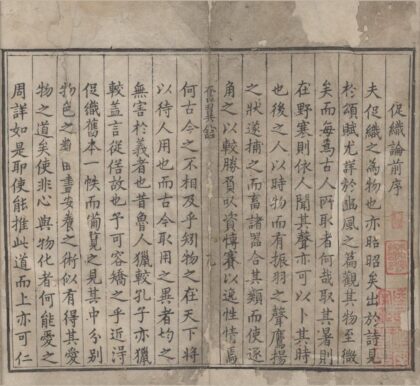 促織論前序
夫促織之為物也亦昭昭矣出於詩見
於頌賦尤詳於豳風之篇觀其物至微
矣而每為古人所取者何哉取其暑則
在野寒則依人聞其聲亦可以卜其時
也後之人以時物而有振羽之聲鷹揚
之狀遂捕之而畜諸器合其類而使逐
角之以較勝負以資博賽以逸性情焉
何古今之不相及乎矧物之在天下將
以待人用也而古今取用之異者均之
無害於義者也昔魯人獵較孔子亦獵
較蓋言從俗故也予可容矯之乎近淂
促織舊本一帙而覽之見其中分別
物色之畫安養之術似有得其愛
物之道矣使非心與物化者何能愛之
周詳如是耶使能推此道而上亦可仁